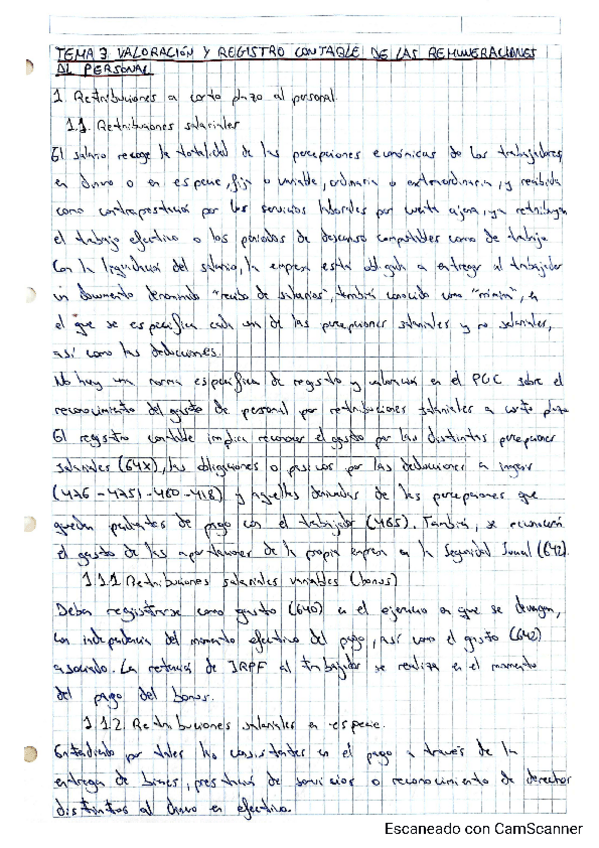 TEMA 3 VALORACIÓN Y REGISTRO CONTABLE DE LAS REMUNERACIONES
AL PERSONAL
1. Retribuciones a corto plazo al personal.
1.1. Retribuciones salariales
El salario recoge la totalidad de las percepciones económicas de los trabajadores,
en dinero o en especie, fija o variable, ordinaria o extraordinaria, y recibida
como contraprestación por los servicios laborales por cuenta ajena, ya retribuyan
el trabajo efectivo o los períodos de descanso computables como de trabajo
Con la liquidación del salario, la empresa está obligada a entregar al trabajador
un documento denominado "recibo de salarios", también conocido como "nómina", en
el que se especifica cada una de las percepciones salariales y no salariales,
así como las deducciones.
No hay una norma específica de registro y valoración en el PGC sobre el
reconocimiento del gasto de personal por retribuciones salariales a corto plazo
El registro contable implica reconocer el gasto por las distintas percepciones
salariales (64X), las obligaciones o pasivos por las deducciones a ingresar
(476 - 4751 - 460 - 418) y aquellas derivadas de las percepciones que
quedan pendientes de pago con el trabajador (465). También, se reconocerá
el gasto de las aportaciones de la propia empresa a la Seguridad Social (642).
1.1.1 Retribuciones salariales variables (bonus)
Deben registrarse como gasto (640) en el ejercicio en que se devengan,
con independencia del momento efectivo del pago, así como el gasto (642)
asociado. La retención de IRPF al trabajador se realiza en el momento
del pago del bonus.
1.1.2. Retribuciones salariales en especie.
Entendiendo por tales las consistentes en el pago a través de la
entrega de bienes, prestación de servicios o reconocimiento de derechos
distintos al dinero en efectivo.
Escaneado con CamScanner